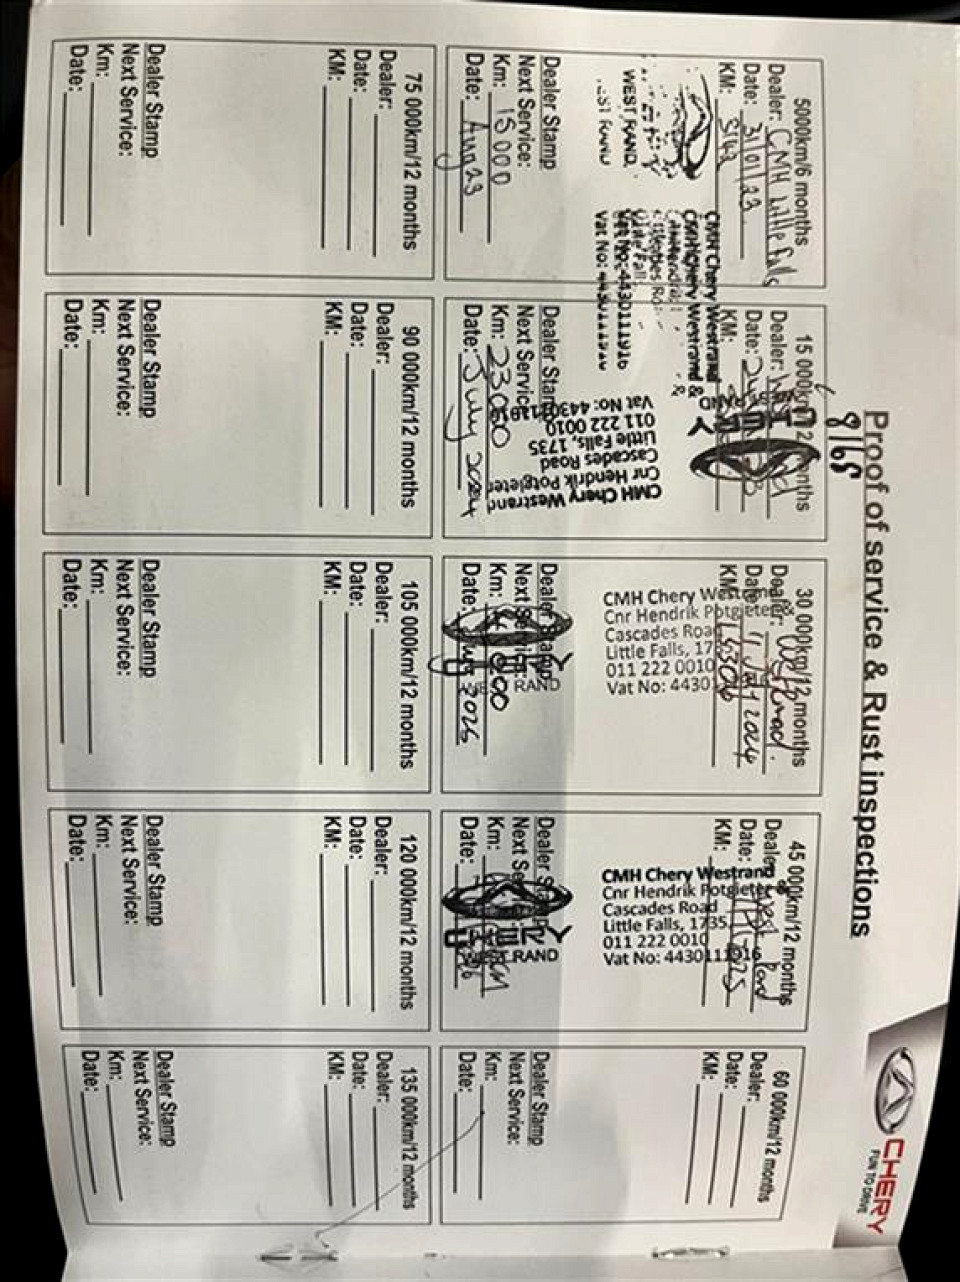 CHERY
FUN TO DRIVE
Proof of service & Rust inspections
5000km/6 months
Dealer: CMH Little Falls
Date: 31/01/23
KM: 5142
WEST RAND
CMH Chery Westrand &
Vat No: 4430111916
Dealer Stamp
Next Service:
Km: 15 000
Date: Aug 23
15 000km/12 months
Dealer:
Date:
KM:
8168
CMH Chery Westrand
Cnr Hendrik Potgieter
Cascades Road
Little Falls, 1735
011 222 0010
Vat No: 4430111916
Dealer Stamp
Next Service:
Km:
Date: July 2024
30 000km/12 months
Dealer:
Date: 11 July 2024
KM:
CMH Chery Westrand &
Cnr Hendrik Potgieter &
Cascades Road
Little Falls, 17
011 222 0010
Vat No: 4430
Dealer Stamp
Next Service:
WEST RAND
Km:
Date: 2025
45 000km/12 months
Dealer: West Rand
Date: 2025
KM:
CMH Chery Westrand &
Cnr Hendrik Potgieter
Cascades Road
Little Falls, 1735
011 222 0010
Vat No: 4430111916
Dealer Stamp
Next Service:
CHERY
WEST RAND
Km:
Date:
60 000km/12 months
Dealer:
Date:
KM:
Dealer Stamp
Next Service:
Km:
Date:
75 000km/12 months
Dealer:
Date:
KM:
Dealer Stamp
Next Service:
Km:
Date:
90 000km/12 months
Dealer:
Date:
KM:
Dealer Stamp
Next Service:
Km:
Date:
105 000km/12 months
Dealer:
Date:
KM:
Dealer Stamp
Next Service:
Km:
Date:
120 000km/12 months
Dealer:
Date:
KM:
Dealer Stamp
Next Service:
Km:
Date:
135 000km/12 months
Dealer:
Date:
KM:
Dealer Stamp
Next Service:
Km:
Date: